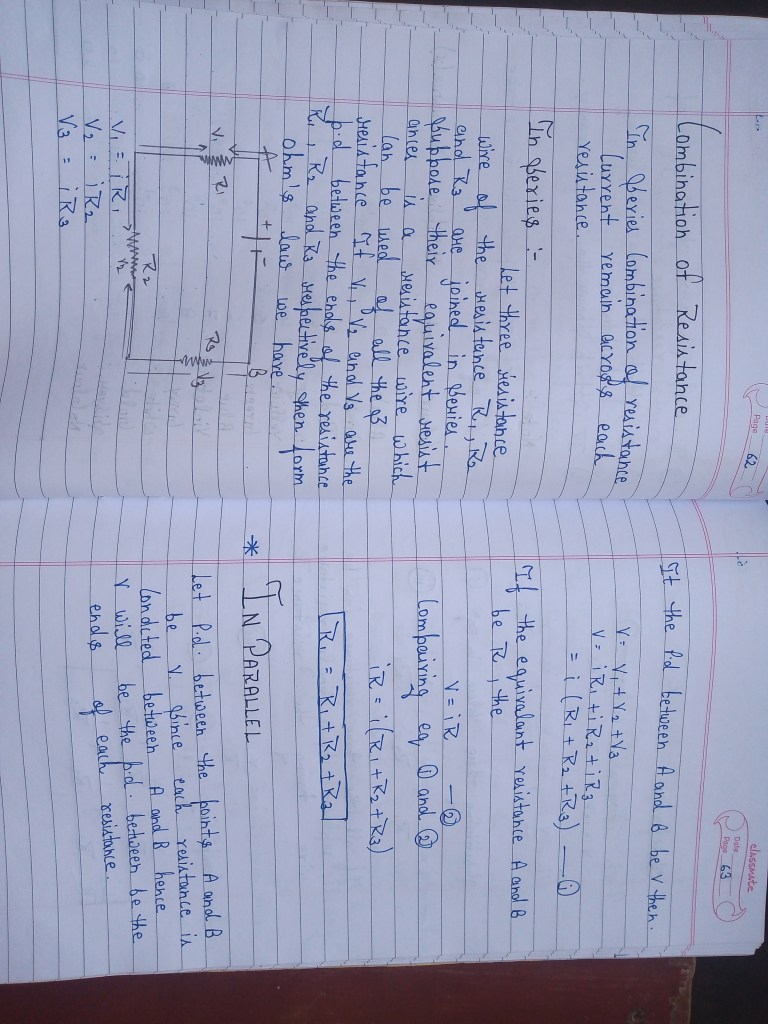 Date
Page 62
Combination of Resistance
In Series Combination of resistance
Current remain across each
resistance.
In Series :-
Let three resistance
wire of the resistance R1, R2
and R3 are joined in Series.
Suppose their equivalent resist
ances is a resistance wire which
Can be used of all the
resistance If V1, V2 and V3 are the
p.d between the ends of the resistance
R1, R2 and R3 respectively then form
ohm's law we have.
A + - B
V1 R1 R3 V3
R2
V2
V1 = iR1
V2 = iR2
V3 = iR3
classmate
Date
Page 63
It the P.d between A and B be V then.
V = V1 + V2 + V3
V = iR1 + iR2 + iR3
= i (R1 + R2 + R3) — ①
If the equivalant resistance A and B
be R, the
V = iR — ②
Compairing eq ① and ②
iR = i(R1 + R2 + R3)
R1 = R1 + R2 + R3
* IN PARALLEL
Let P.d. between the points A and B
be V. Since each resistance is
Condicted between A and B hence
V will be the p.d. between be the
ends of each resistance.